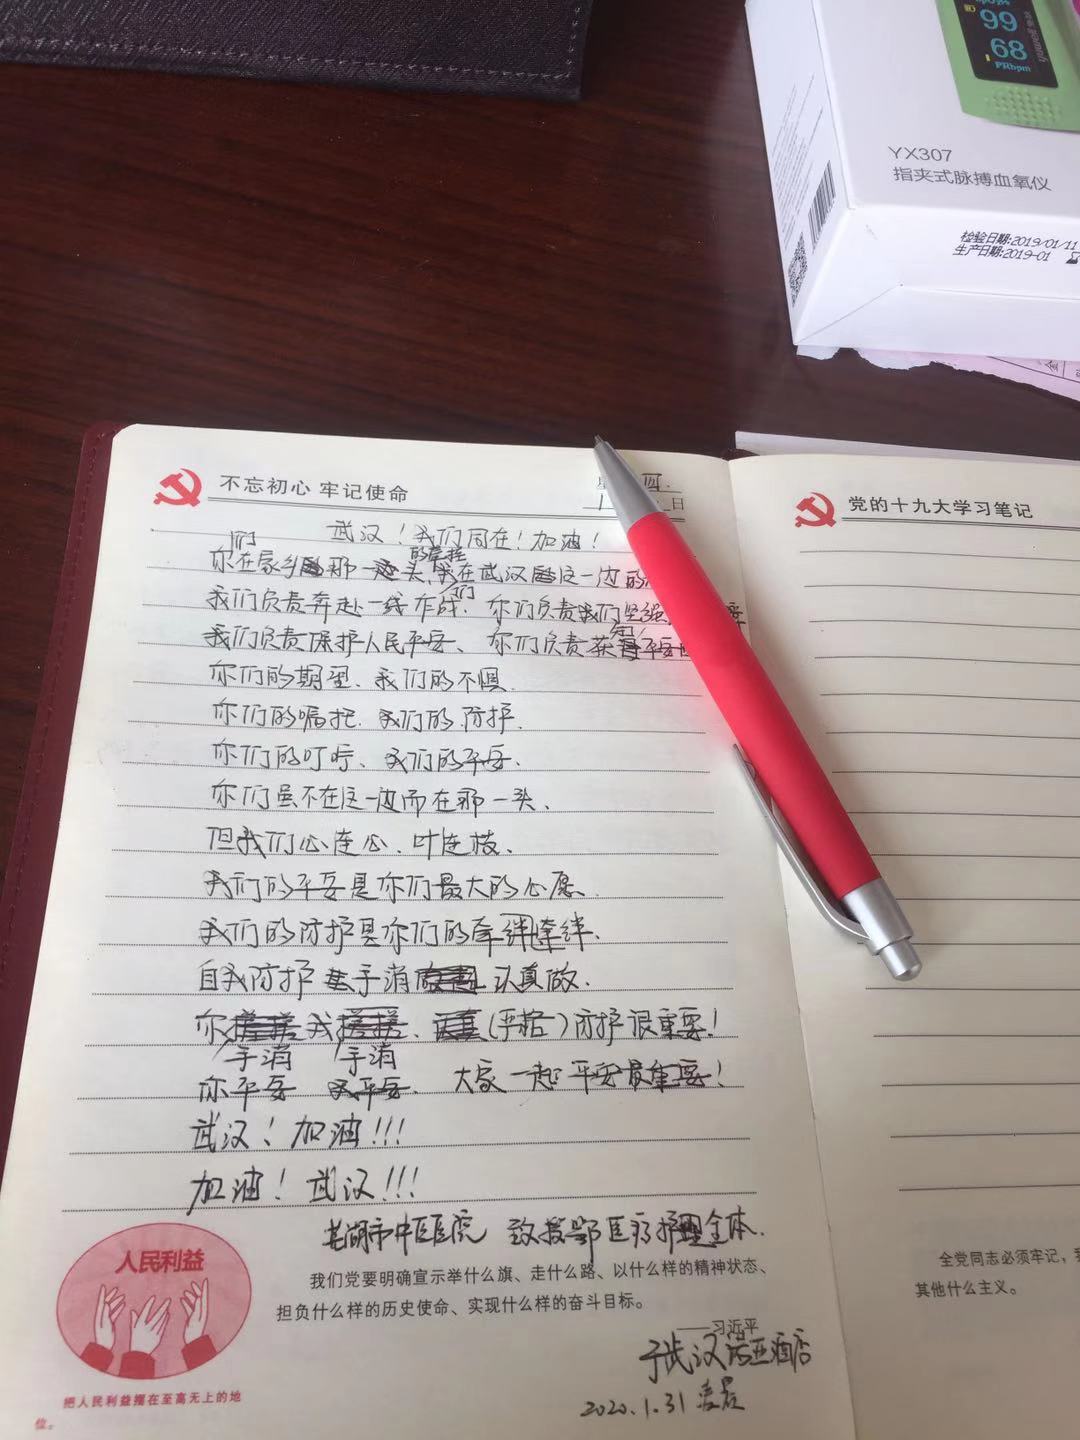 99
68
PRbpm
YX307
指夹式脉搏血氧仪
检验日期:2019/01/11
生产日期:2019-01
不忘初心 牢记使命
日
武汉！我们同在！加油！
你们在家乡那一头的牵挂,我们在武汉这一边的
我们负责奔赴一线作战、你们负责我们坚强
我们负责保护人民平安、你们负责获知平安
你们的期望、我们的不惧、
你们的嘱托、我们的防护、
你们的叮咛、我们的平安、
你们虽不在这一边而在那一头、
但我们心连心、叶连枝、
我们的平安是你们最大的心愿、
我们的防护是你们的牵绊牵绊、
自我防护 手消 认真做、
你手消 我手消、(严格)防护很重要！
你平安 我平安、大家一起平安最重要！
武汉！加油!!!
加油！武汉!!!
芜湖市中医医院 致援鄂医疗护理全体、
人民利益
把人民利益摆在至高无上的地
位。
我们党要明确宣示举什么旗、走什么路、以什么样的精神状态、
担负什么样的历史使命、实现什么样的奋斗目标。
——习近平
于武汉诺亚酒店
2020.1.31 凌晨
党的十九大学习笔记
全党同志必须牢记，
其他什么主义。